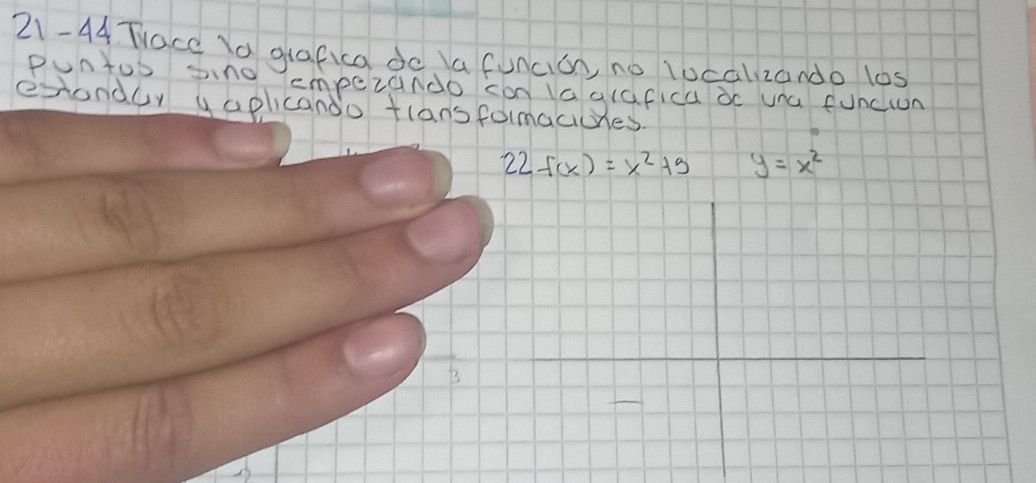 21-44 Trace la grafica de la función, no localizando los
puntos sino empezando con la grafica de una función
estandar y aplicando transformaciones.
22 f(x) = x²+9 y = x²
3